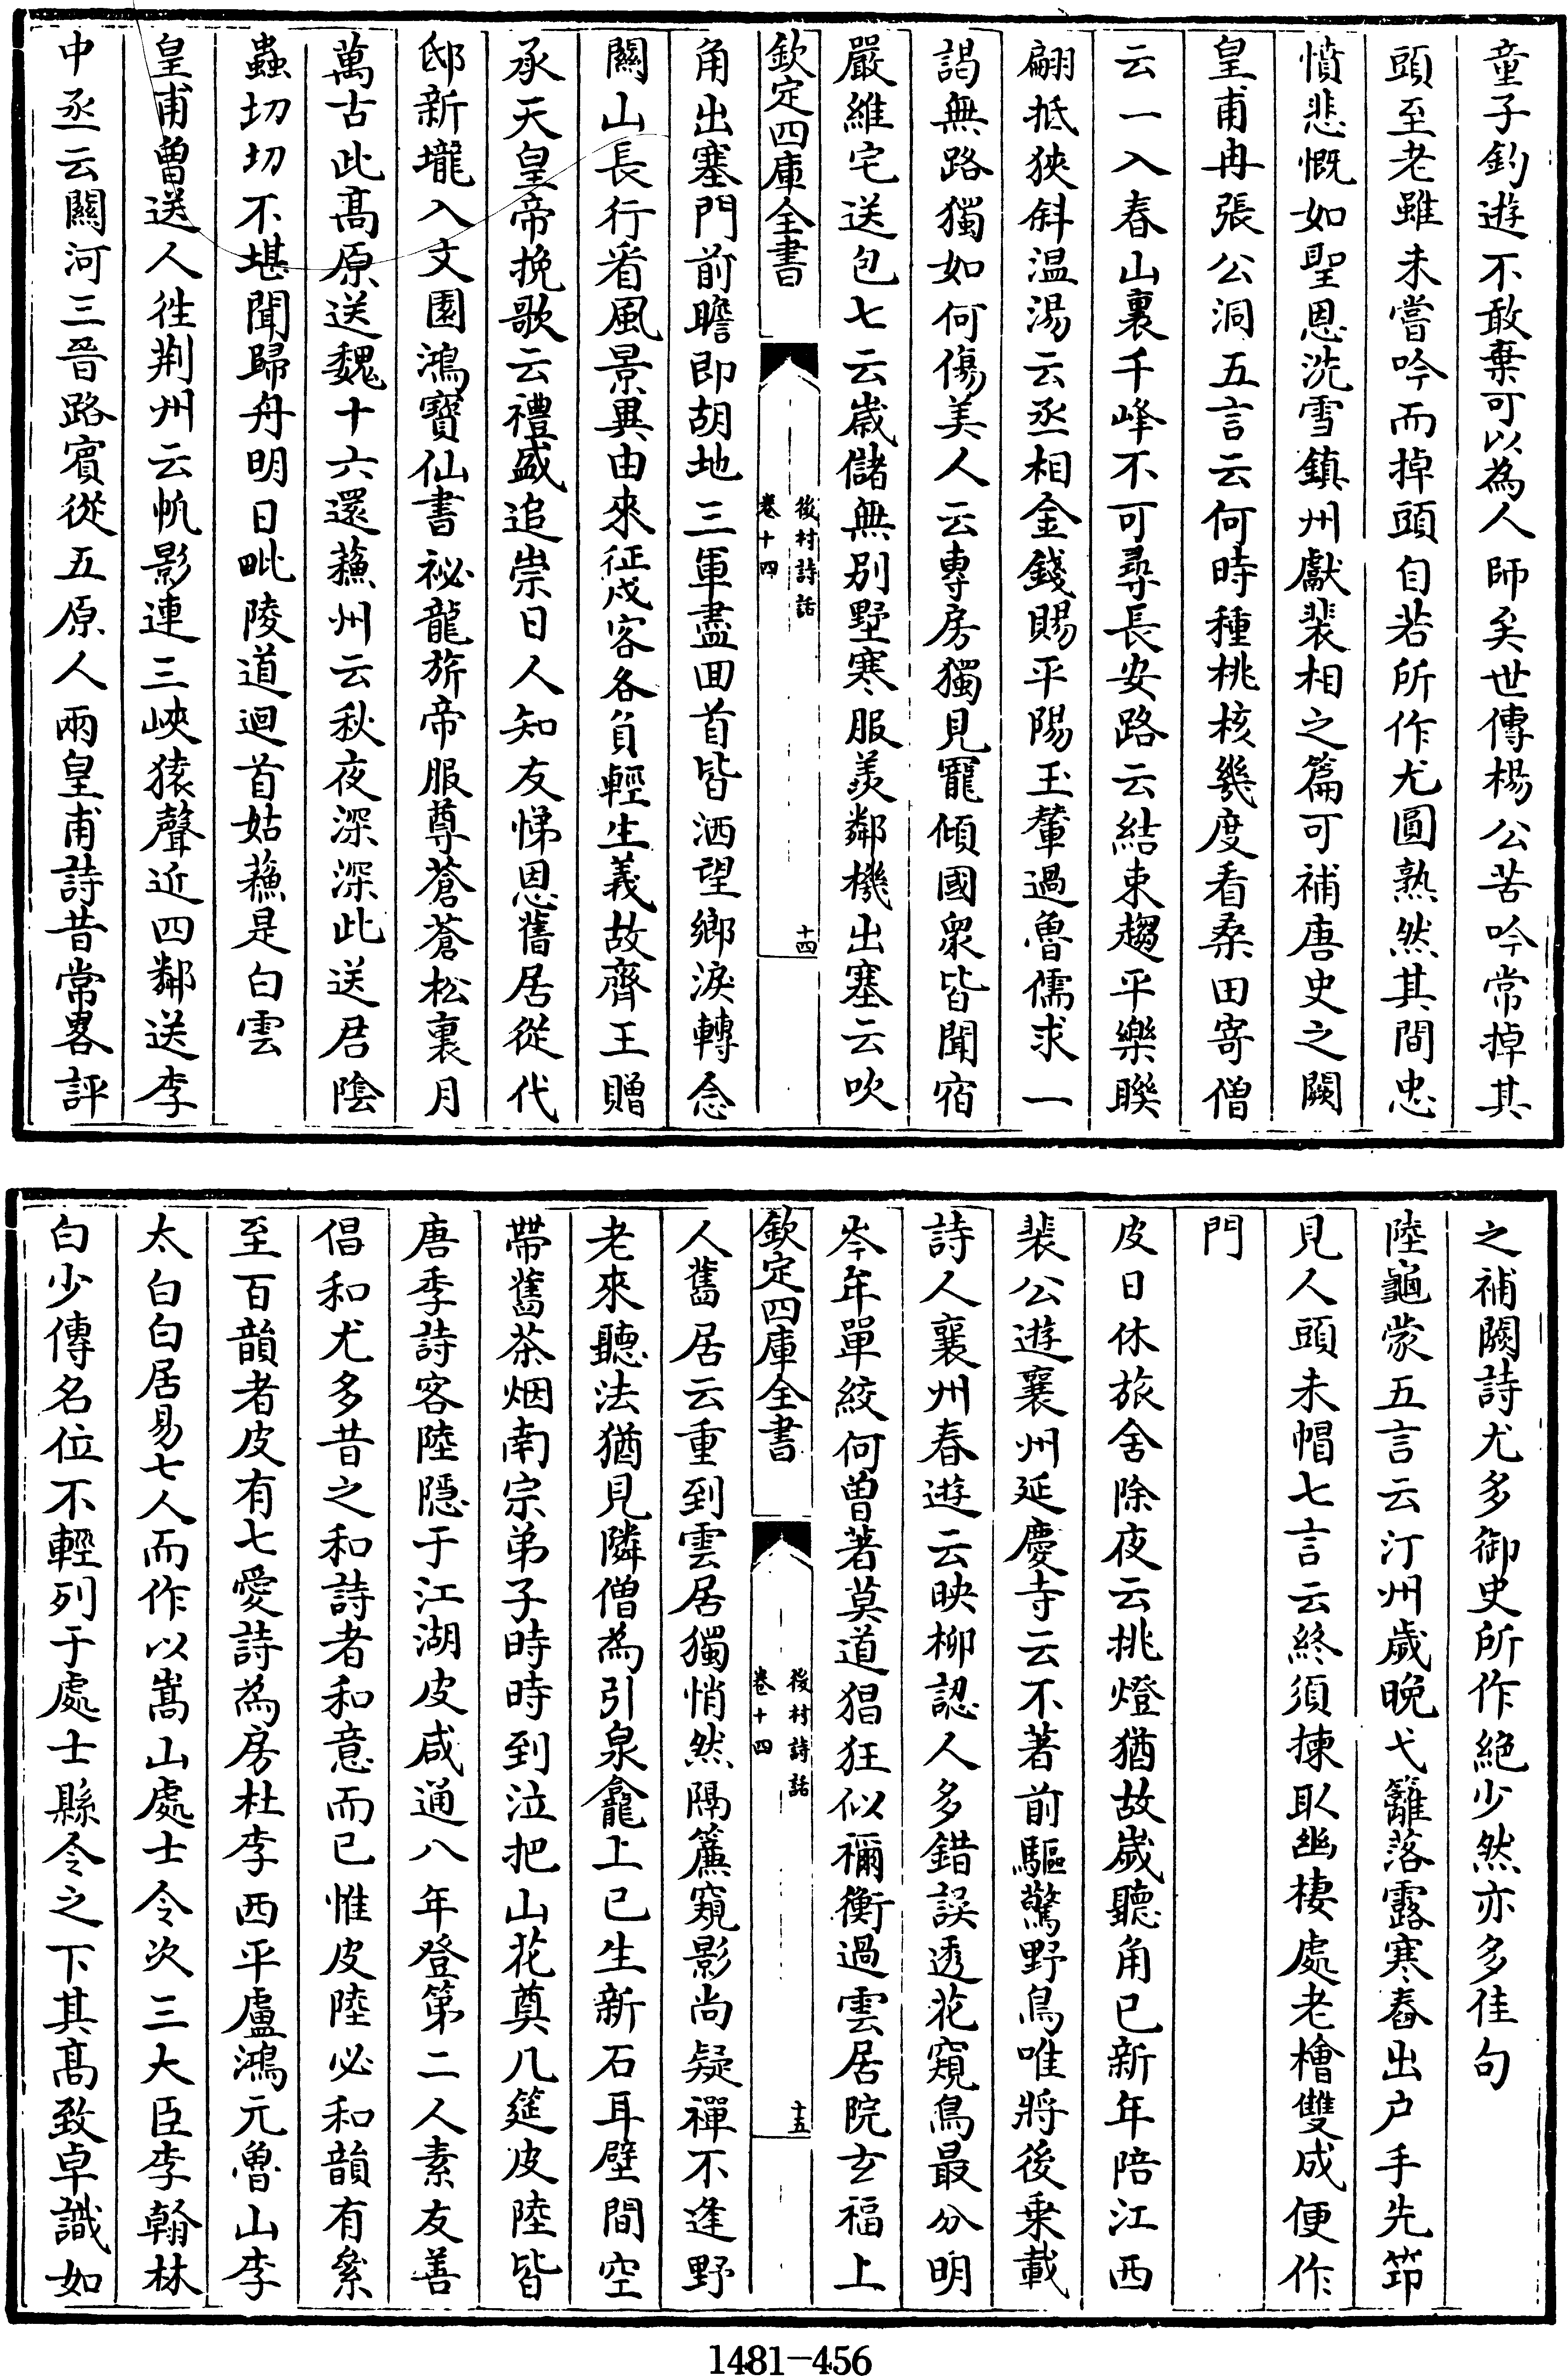 童子釣遊不敢棄可以為人師矣世傳楊公苦吟常掉其
頭至老雖未嘗吟而掉頭自若所作尤圓熟然其間忠
憤悲慨如聖恩洗雪鎮州獻裴相之篇可補唐史之闕
皇甫冉張公洞五言云何時種桃核幾度看桑田寄僧
云一入春山裏千峰不可尋長安路云結束趨平樂聯
翩抵狹斜温湯云丞相金錢賜平陽玉輦過魯儒求一
謁無路獨如何傷美人云專房獨見寵傾國衆皆聞宿
嚴維宅送包七云歲儲無别墅寒服羡鄰機出塞云吹
欽定四庫全書
後村詩話
卷十四
十四
角出塞門前瞻即胡地三軍盡回首皆洒望鄉淚轉念
關山長行看風景異由來征戍客各負輕生義故齊王贈
承天皇帝挽歌云禮盛追崇日人知友悌恩舊居從代
邸新壠入文園鴻寶仙書祕龍旂帝服尊蒼蒼松裏月
萬古此髙原送魏十六還蘓州云秋夜深深此送君隂
蟲切切不堪聞歸舟明日毗陵道迴首姑蘓是白雲
皇甫曾送人往荆州云帆影連三峽猿聲近四鄰送李
中丞云關河三晉路賓從五原人兩皇甫詩昔常畧評
之補闕詩尤多御史所作絶少然亦多佳句
陸龜蒙五言云汀州歲晚弋籬落露寒舂出户手先笻
見人頭未帽七言云終須揀取幽棲處老檜雙成便作
門
皮日休旅舍除夜云挑燈猶故歲聽角已新年陪江西
裴公遊襄州延慶寺云不著前驅驚野鳥唯將後乗載
詩人襄州春遊云映柳認人多錯誤透花窺鳥最分明
岑年單絞何曽著莫道猖狂似禰衡過雲居院玄福上
欽定四庫全書
後村詩話
卷十四
十五
人舊居云重到雲居獨悄然隔簾窺影尚疑禪不逢野
老來聽法猶見隣僧為引泉龕上已生新石耳壁間空
帶舊茶烟南宗弟子時時到泣把山花奠几筵皮陸皆
唐季詩客陸隱于江湖皮咸通八年登第二人素友善
倡和尤多昔之和詩者和意而已惟皮陸必和韻有絫
至百韻者皮有七愛詩為房杜李西平盧鴻元魯山李
太白白居易七人而作以嵩山處士令次三大臣李翰林
白少傳名位不輕列于處士縣令之下其髙致卓識如
1481-456